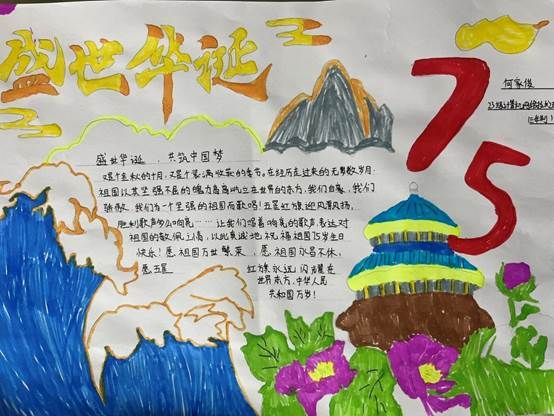 盛世华诞
75
何家俊
盛世华诞，共筑中国梦
又是金秋的十月，又是个累满收获的季节。在经历走过来的无数岁月，
祖国以其坚强不屈的魄力高高屹立在世界的东方，我们自豪，我们
骄傲，我们为一个坚强的祖国而歌唱！五星红旗迎风飘扬，
胜利歌声多么响亮……让我们唱着响亮的歌声，表达对
祖国的敬佩之情，以此真诚地祝福祖国75岁生日
快乐！愿祖国万世繁荣，愿祖国永昌不休，
愿五星 红旗永远闪耀在
世界东方，中华人民
共和国万岁！